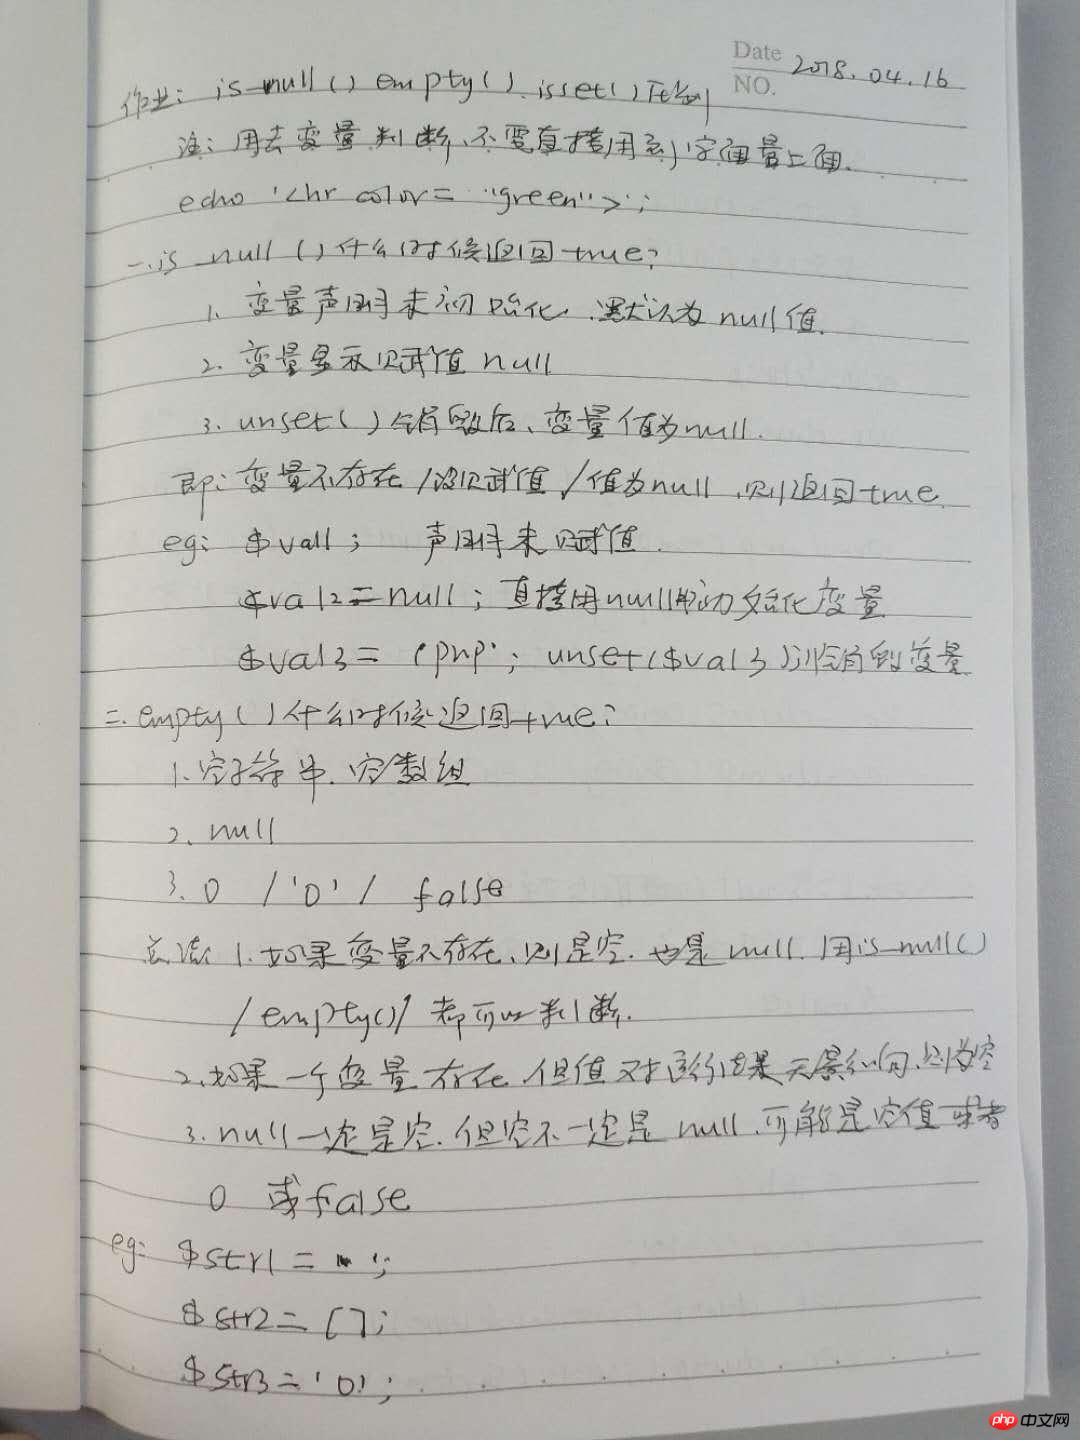 Date 2018.04.16
NO.
作业: is_null() empty() isset() 区别
注: 用去变量判断、不要直接用到字面量上面.
echo '<hr color="green">';
一. is_null()什么时候返回true?
1. 变量声明未初始化, 默认为null值.
2. 变量显示赋值 null
3. unset()销毁后、变量值为null.
即: 变量不存在/没赋值/值为null, 则返回true.
eg: $val1; 声明未赋值.
$val2=null; 直接用null 初始化变量
$val3='php'; unset($val3) 销毁变量
二. empty()什么时候返回true?
1. 空字符串. 空数组
2. null
3. 0 /'0'/ false
总结 1. 如果变量不存在、则是空. 也是null. 用is_null()
/empty()/ 都可以判断.
2. 如果一个变量存在 但值对运行结果无影响, 则为空
3. null一定是空. 但空不一定是null. 可能是空值或者
0 或false
eg: $str1 = '';
$str2 = [];
$str3 = '0';
php 中文网